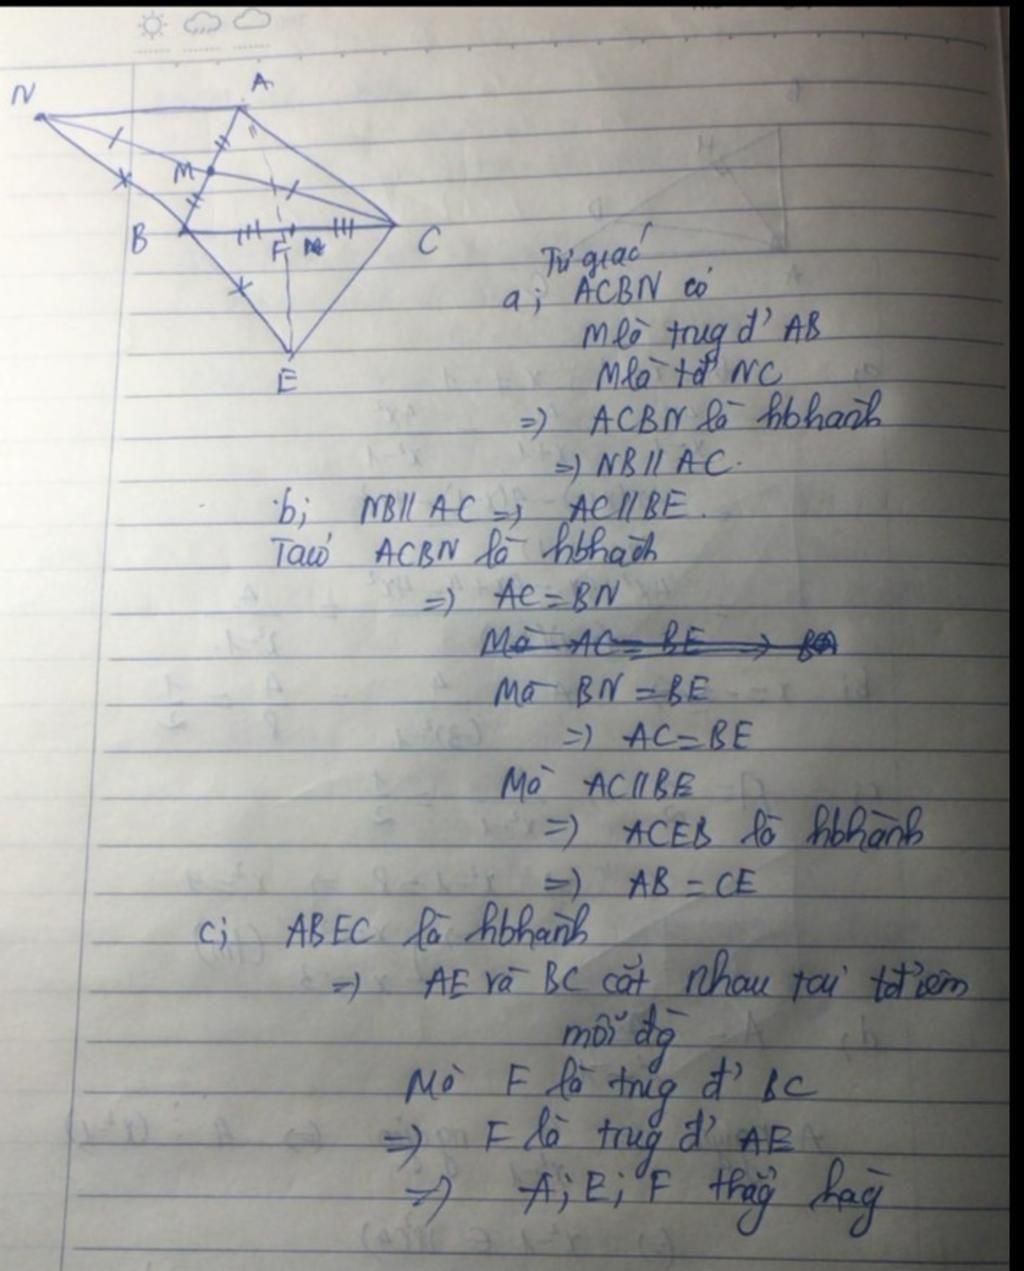 N
A
M
B
F
C
E
Tứ giác
a; ACBN có
M là trug đ' AB
M là tđ NC
=) ACBN là hbhành
=) NB // AC.
b; NB // AC =) AC // BE.
Ta có ACBN là hbhành
=) AC = BN
Mà AC = BE =>
Mà BN = BE
=) AC = BE
Mà AC // BE
=) ACEB là hbhành
=) AB = CE
c; ABEC là hbhành
=) AE và BC cắt nhau tại tđiểm
mỗi đg
Mà F là trug đ' BC
=) F là trug đ' AE
=) A; E; F thẳg hàg